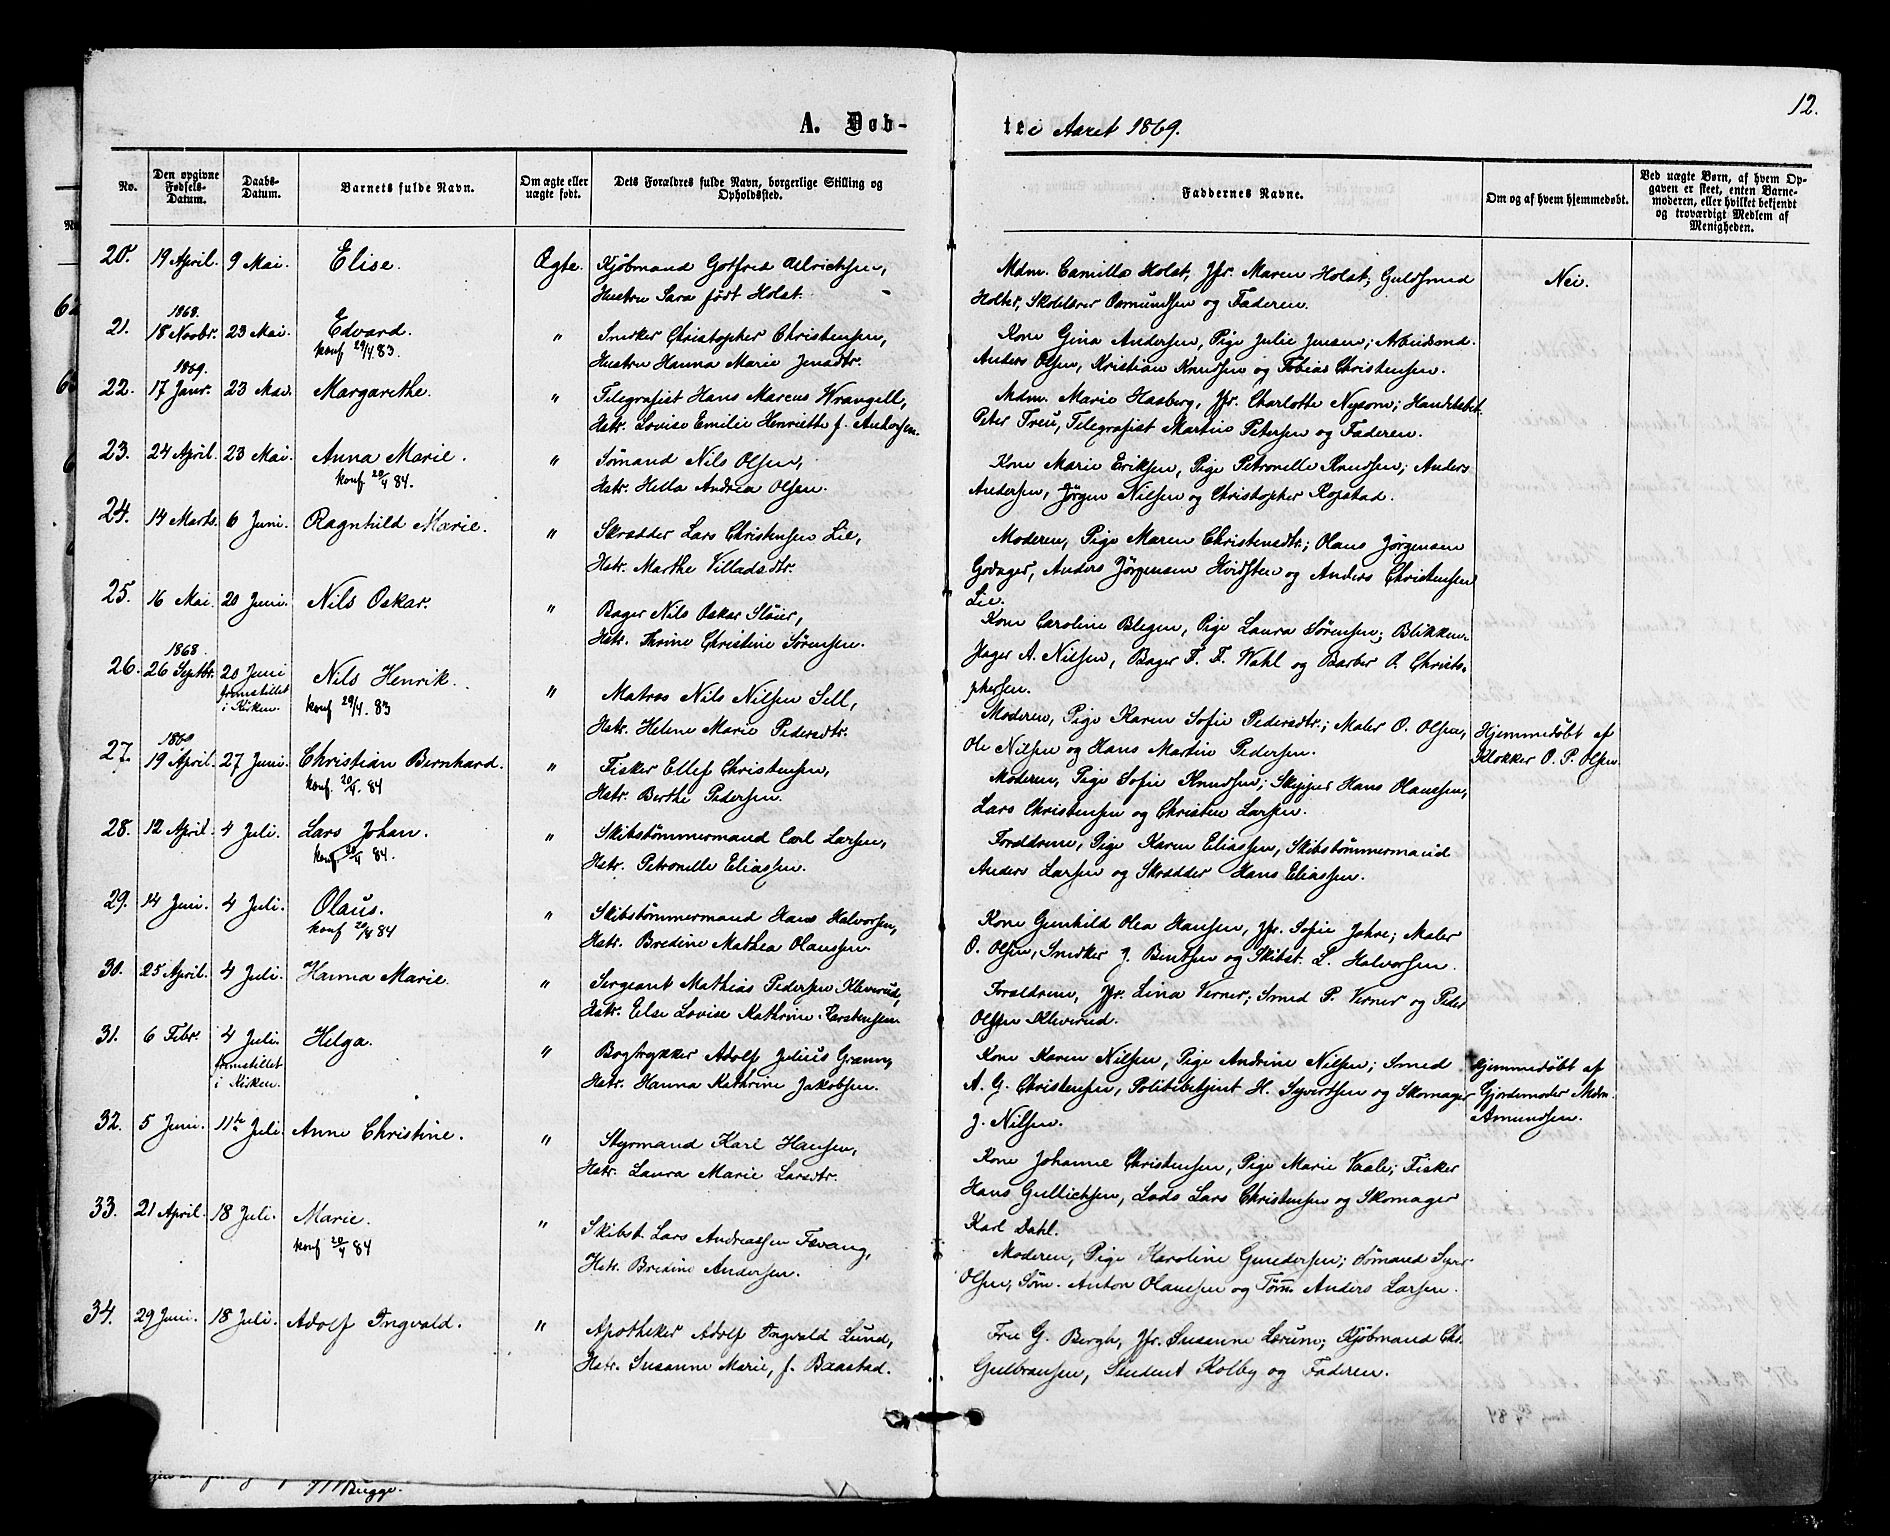 12.
A. Døb-
te i Aaret 1869.
No.
Den opgivne Fødsels-Datum.
Daabs-Datum.
Barnets fulde Navn.
Om ægte eller uægte født.
Dets Forældres fulde Navn, borgerlige Stilling og Opholdssted.
Faddernes Navne.
Om og af hvem hjemmedøbt.
Ved uægte Børn, af hvem Opgaven er skeet, enten Barnemoderen, eller hvilket bekjendt og troværdigt Medlem af Menigheden.
20. 19 April. 9 Mai. Elise. Ægte. Kjøbmand Gotfred Ulrichsen,
Hustru Sara født Holst.
Mdm. Camilla Holst, Jfr. Maren Holst, Guldsmed
Holter, Skolelærer Osmundsen og Faderen.
Nei.
1868.
21. 18 Novbr. 23 Mai. Edvard. " Snedker Christopher Christensen,
konf 29/4. 83.
Hustru Hanna Marie Jensdtr.
Kone Gina Andersen, Pige Julie Jensen; Arbeidsmd.
Anders Olsen, Kristian Knudsen og Tobias Christensen.
1869.
22. 17 Janr. 23 Mai. Margarethe. " Telegrafist Hans Marcus Wrangell,
Hstr. Lovise Emilie Henriette f. Andersen.
Mdm. Marie Hasberg, Jfr. Charlotte Nysom; Handelsbet.
Peter Treu, Telegrafist Martin Petersen og Faderen.
23. 24 April. 23 Mai. Anna Marie. " Sømand Nils Olsen,
konf 20/4 84.
Hstr. Hella Andrea Olsen.
Kone Marie Eriksen, Pige Petronelle Knudsen; Anders
Andersen, Jørgen Nilsen og Christopher Ropstad.
24. 14 Marts. 6 Juni. Ragnhild Marie. " Skrædder Lars Christensen Lie,
Hstr. Marthe Villadsdtr.
Moderen, Pige Maren Christensdtr.; Olaus Jørgensen
Godager, Anders Jørgensen Hvidsten og Anders Christensen
Lie.
25. 16 Mai. 20 Juni. Nils Oskar. " Bager Nils Oskar Støier,
Hstr. Thrine Christine Sørensen.
Kone Caroline Blegen, Pige Laura Sørensen; Blikken-
slager A. Nilsen, Bager F. F. Wahl og Barber O. Christo-
phersen.
1868.
26. 26 Septbr. 20 Juni fremstillet i Kirken. Nils Henrik. " Matros Nils Nilsen Sell,
konf 29/4. 83
Hstr. Helene Marie Pedersdtr.
Moderen, Pige Karen Sofie Pedersdtr.; Maler O. Olsen,
Ole Nilsen og Hans Martin Pedersen.
Hjemmedøbt af
Klokker O. P. Olsen.
1869
27. 19 April. 27 Juni. Christian Bernhard. " Fisker Ellef Christensen,
konf. 20/4. 84
Hstr. Berthe Pedersen.
Moderen, Pige Sofie Knudsen; Skipper Hans Olaussen,
Lars Christensen og Christen Larsen.
28. 12 April. 4 Juli. Lars Johan. " Skibstømmermand Carl Larsen,
konf 20/4 84.
Hstr. Petronelle Eliassen.
Forældrene, Pige Karen Eliassen, Skibstømmermand
Anders Larsen og Skrædder Hans Eliassen.
29. 14 Juni. 4 Juli. Olaus. " Skibstømmermand Hans Halvorsen,
konf 20/4 84
Hstr. Bredine Mathea Olaussen.
Kone Gunhild Olea Hansen, Jfr. Sofie Jahre; Maler
O. Olsen, Snedker J. Bentsen og Skibst. L. Halvorsen.
30. 25 April. 4 Juli. Hanna Marie. " Sergeant Mathias Pedersen Kleverud,
Hstr. Else Lovise Kathrine Karstensen.
Forældrene, Jfr. Lina Verner; Smed P. Verner og Peder
Olsen Kleverud.
31. 6 Febr. 4 Juli. fremstillet i Kirken. Helga. " Bogtrykker Adolf Julius Grann,
Hstr. Hanna Kathrine Jakobsen.
Kone Karen Nilsen, Pige Andrine Nilsen; Smed
A. G. Christensen, Politibetjent H. Syvertsen og Skomager
J. Nilsen.
Hjemmedøbt af
Gjordemoder Mdm.
Amundsen.
32. 5 Juni. 11te Juli. Anne Christine. " Styrmand Karl Hansen,
Hstr. Laura Marie Larsdtr.
Kone Johanne Christensen, Pige Marie Vaale; Fisker
Hans Gullichsen, Lods Lars Christensen og Skomager
Karl Dahl.
33. 21 April. 18 Juli. Marie. " Skibst. Lars Andreassen Fevang,
konf 20/4 84
Hstr. Bredine Andersen.
Moderen, Pige Karoline Gundersen; Sømand Syver
Olsen, Søm. Anton Olaussen og Tømm. Anders Larsen.
34. 29 Juni. 18 Juli. Adolf Ingvald. " Apotheker Adolf Ingvald Lund,
Hstr. Susanne Marie, f. Baastad.
Frue G. Bergh, Jfr. Susanne Lærum; Kjøbmand Chr.
Gulbransen, Student Kolby og Faderen.
Bugge.